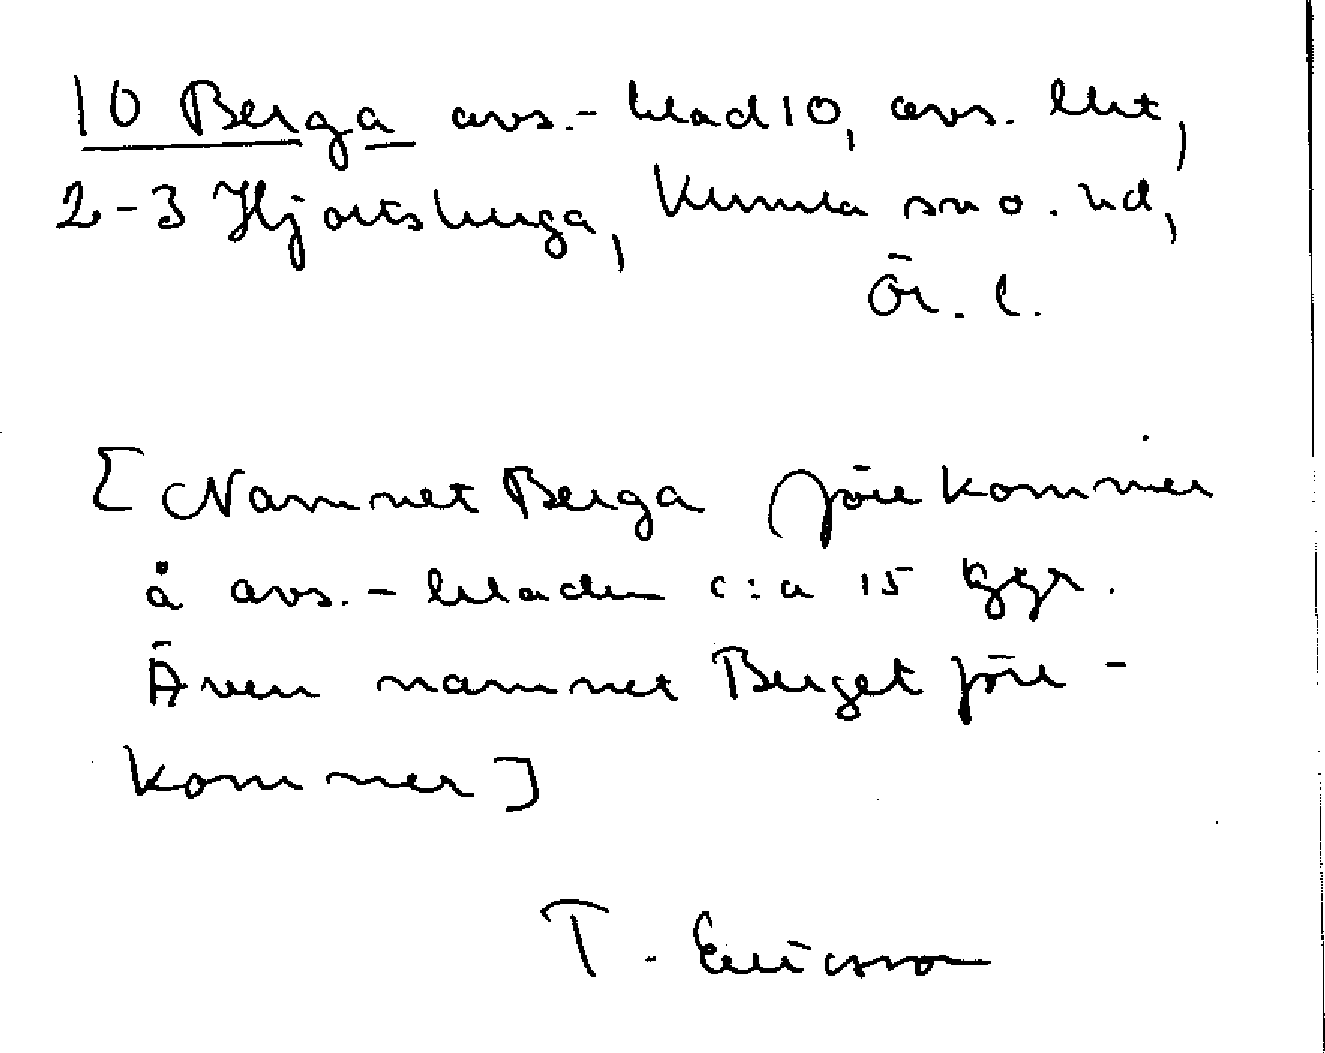 10 Berga avs.-blad 10, avs. lht,
2-3 Hjortsberga, Kumla sn o. hd,
Ör. l.
[Namnet Berga förekommer
å avs.-bladen c:a 15 ggr.
Även namnet Berget före-
kommer]
T. Ericsson